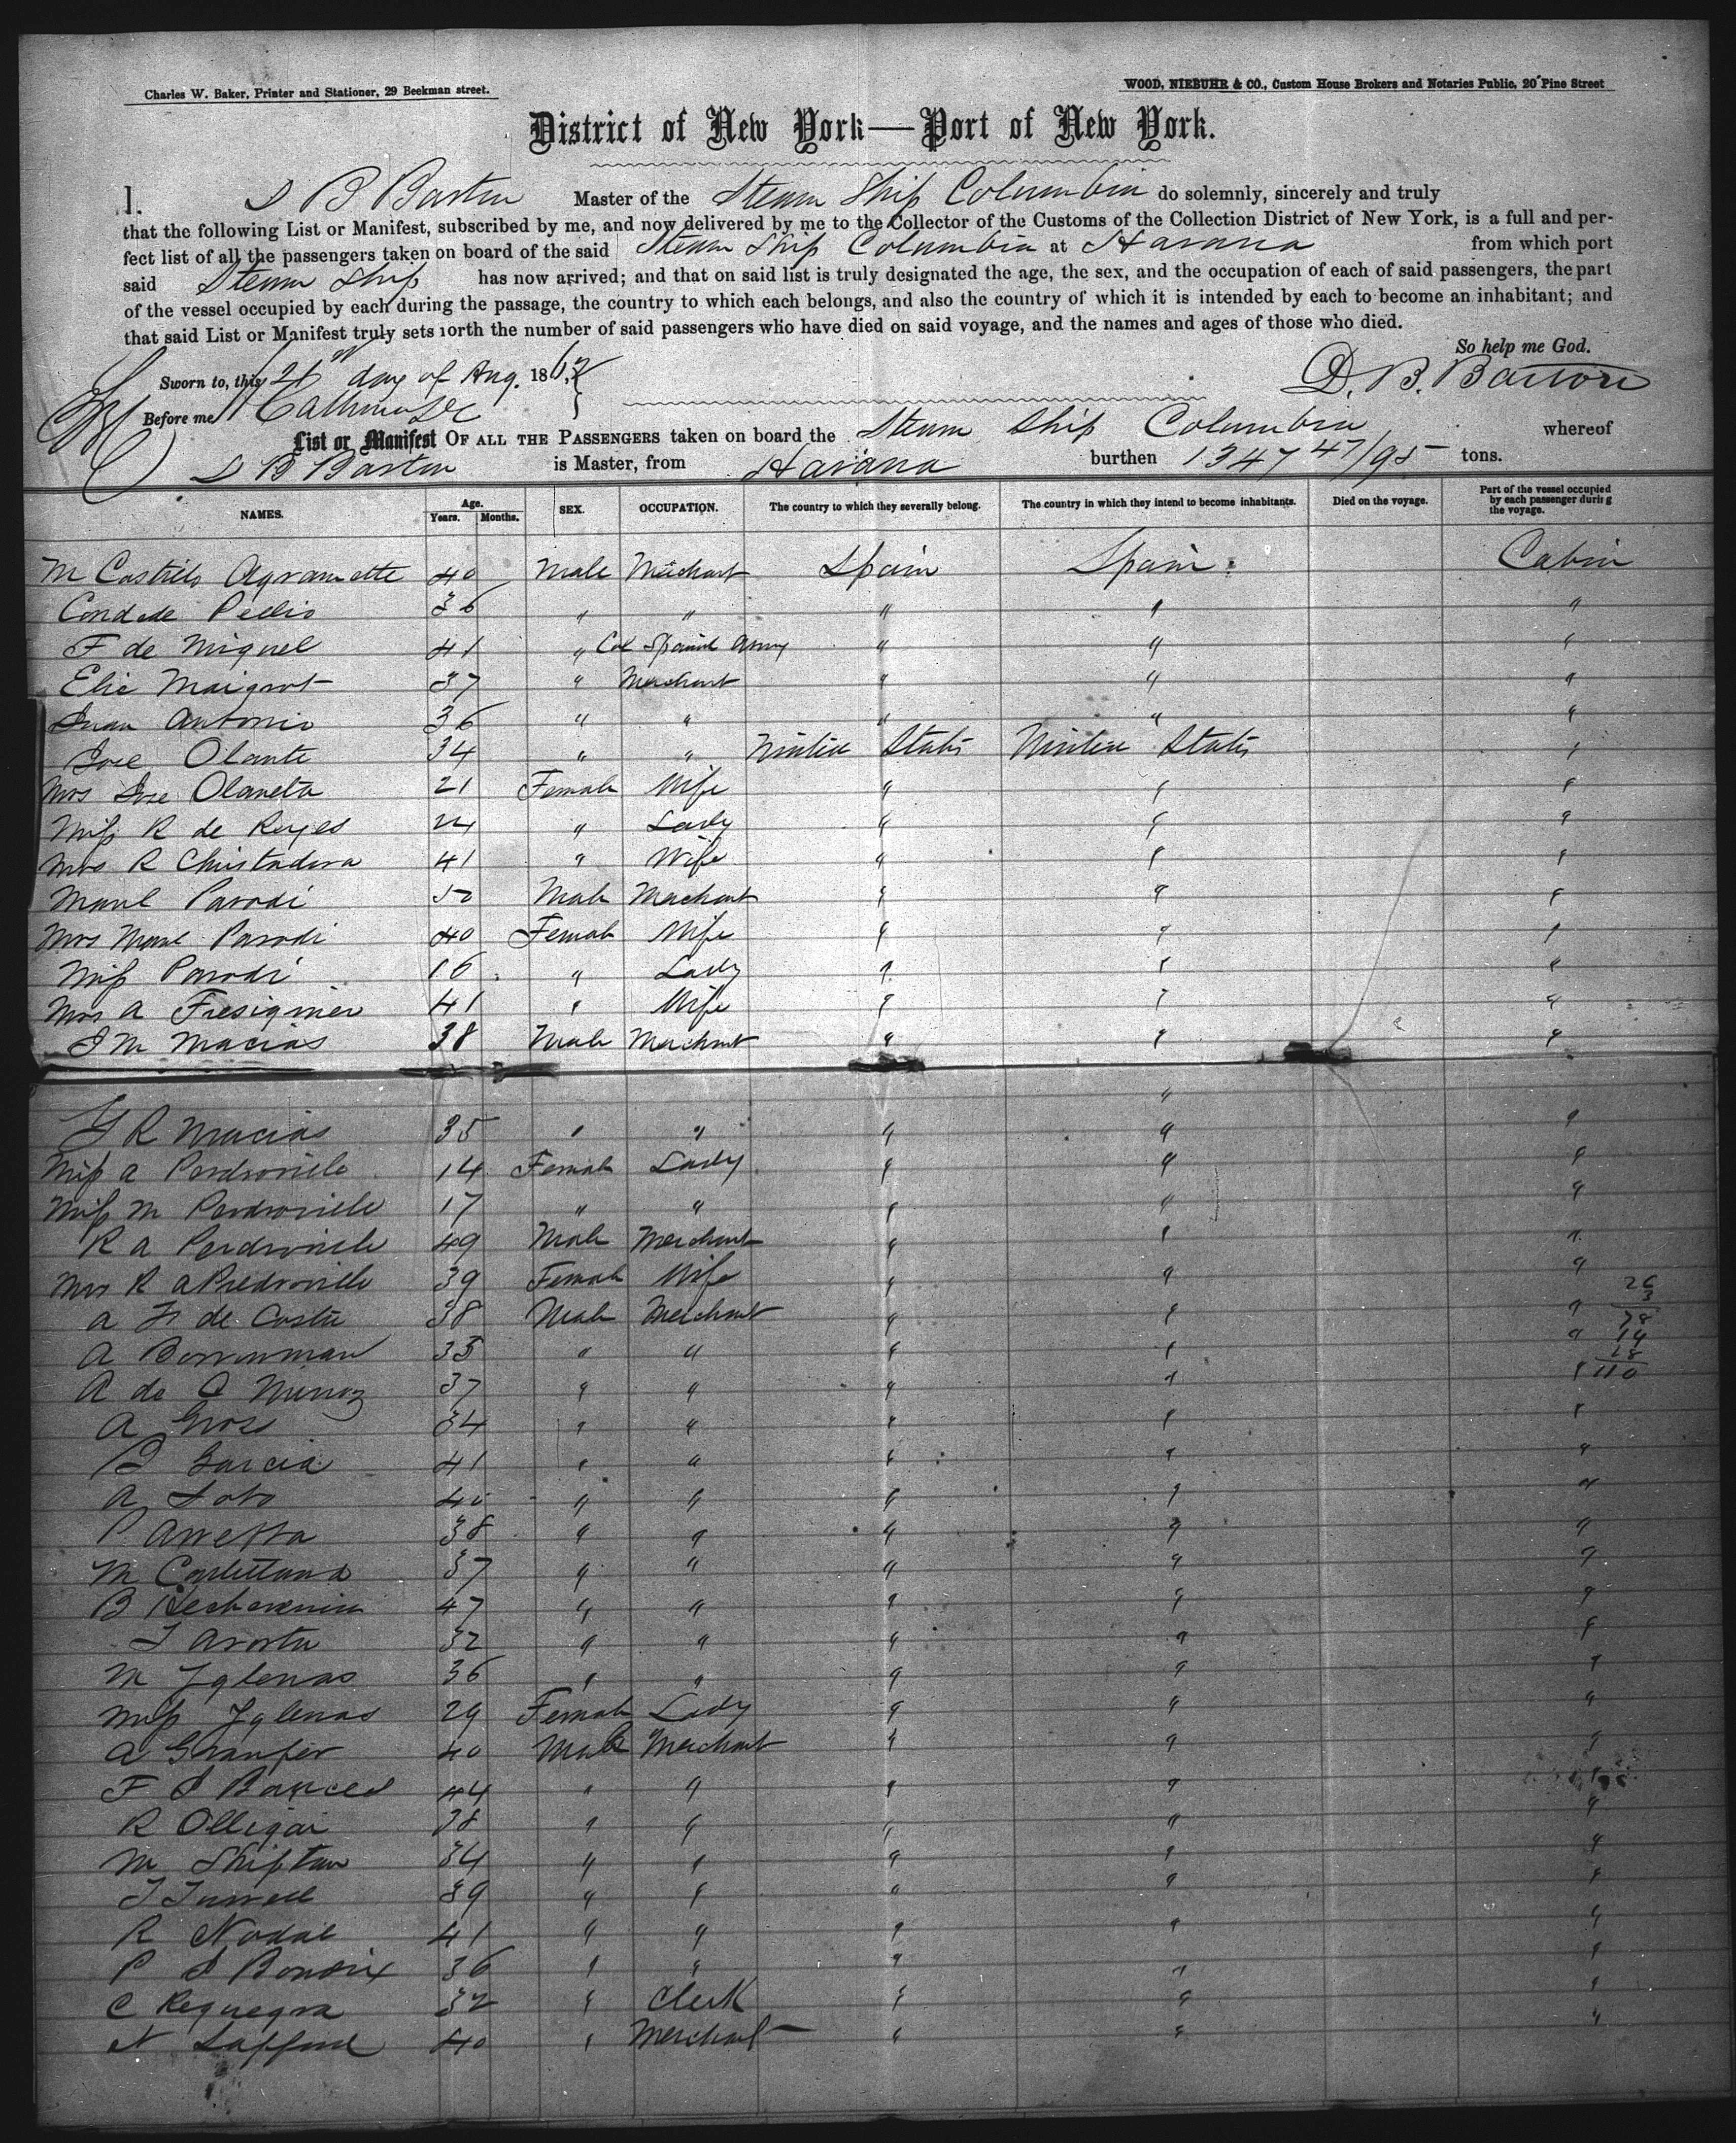 Charles W. Baker, Printer and Stationer, 29 Beekman street.
WOOD, NIEBUHR & CO., Custom House Brokers and Notaries Public, 20 Pine Street
District of New York—Port of New York.
I. D B Barton Master of the Steam Ship Columbia do solemnly, sincerely and truly
that the following List or Manifest, subscribed by me, and now delivered by me to the Collector of the Customs of the Collection District of New York, is a full and per-
fect list of all the passengers taken on board of the said Steam Ship Columbia at Havana from which port
said Steam Ship has now arrived; and that on said list is truly designated the age, the sex, and the occupation of each of said passengers, the part
of the vessel occupied by each during the passage, the country to which each belongs, and also the country of which it is intended by each to become an inhabitant; and
that said List or Manifest truly sets forth the number of said passengers who have died on said voyage, and the names and ages of those who died.
So help me God.
Sworn to, this 21 day of Aug. 186
D. B. Barton
Before me
List or Manifest OF ALL THE PASSENGERS taken on board the Steam Ship Columbia whereof
D B Barton is Master, from Havana burthen 1347 47/95 tons.
NAMES. Age. Years. Months. SEX. OCCUPATION. The country to which they severally belong. The country in which they intend to become inhabitants. Died on the voyage. Part of the vessel occupied by each passenger during the voyage.
M Castillo Agramette 40 Male Merchant Spain Spain Cabin
Conde de 36 " " " " "
F de Miguel 41 " Col Spanish Army " " "
Elie Maigrot 37 " Merchant " " "
Juan Antonio 36 " " " " "
Jose Olante 34 " " United States United States "
Mrs Jose Olaneta 21 Female Wife " " "
Miss R de Reyes 24 " Lady " " "
Mrs R Christadora 41 " Wife " " "
Manl Parodi 50 Male Merchant " " "
Mrs Manl Parodi 40 Female Wife " " "
Miss Parodi 16 " Lady " " "
Mrs A 41 " Wife " " "
J M Macias 38 Male Merchant " " "
"
R Macias 35 " " " " "
Miss A 14 Female Lady " " "
Miss M 17 " " " " "
R A 49 Male Merchant " " "
Mrs R A 39 Female Wife " " "
A F de Costa 38 Male Merchant " " "
A 35 " " " " "
A de C Munoz 37 " " " " "
A Gros 34 " " " " "
Garcia 41 " " " " "
A Soto 40 " " " " "
P 38 " " " " "
M 37 " " " " "
B 47 " " " " "
Arosta 32 " " " " "
M Yglenas 36 " " " " "
Miss Yglenas 29 Female Lady " " "
A 40 Male Merchant " " "
F J 44 " " " " "
R Olligai 38 " " " " "
M Shipton 34 " " " " "
39 " " " " "
R Nodal 41 " " " " "
P J 36 " " " " "
C Requegra 32 " Clerk " " "
N 40 " Merchant " " "
26
3
78
14
18
110